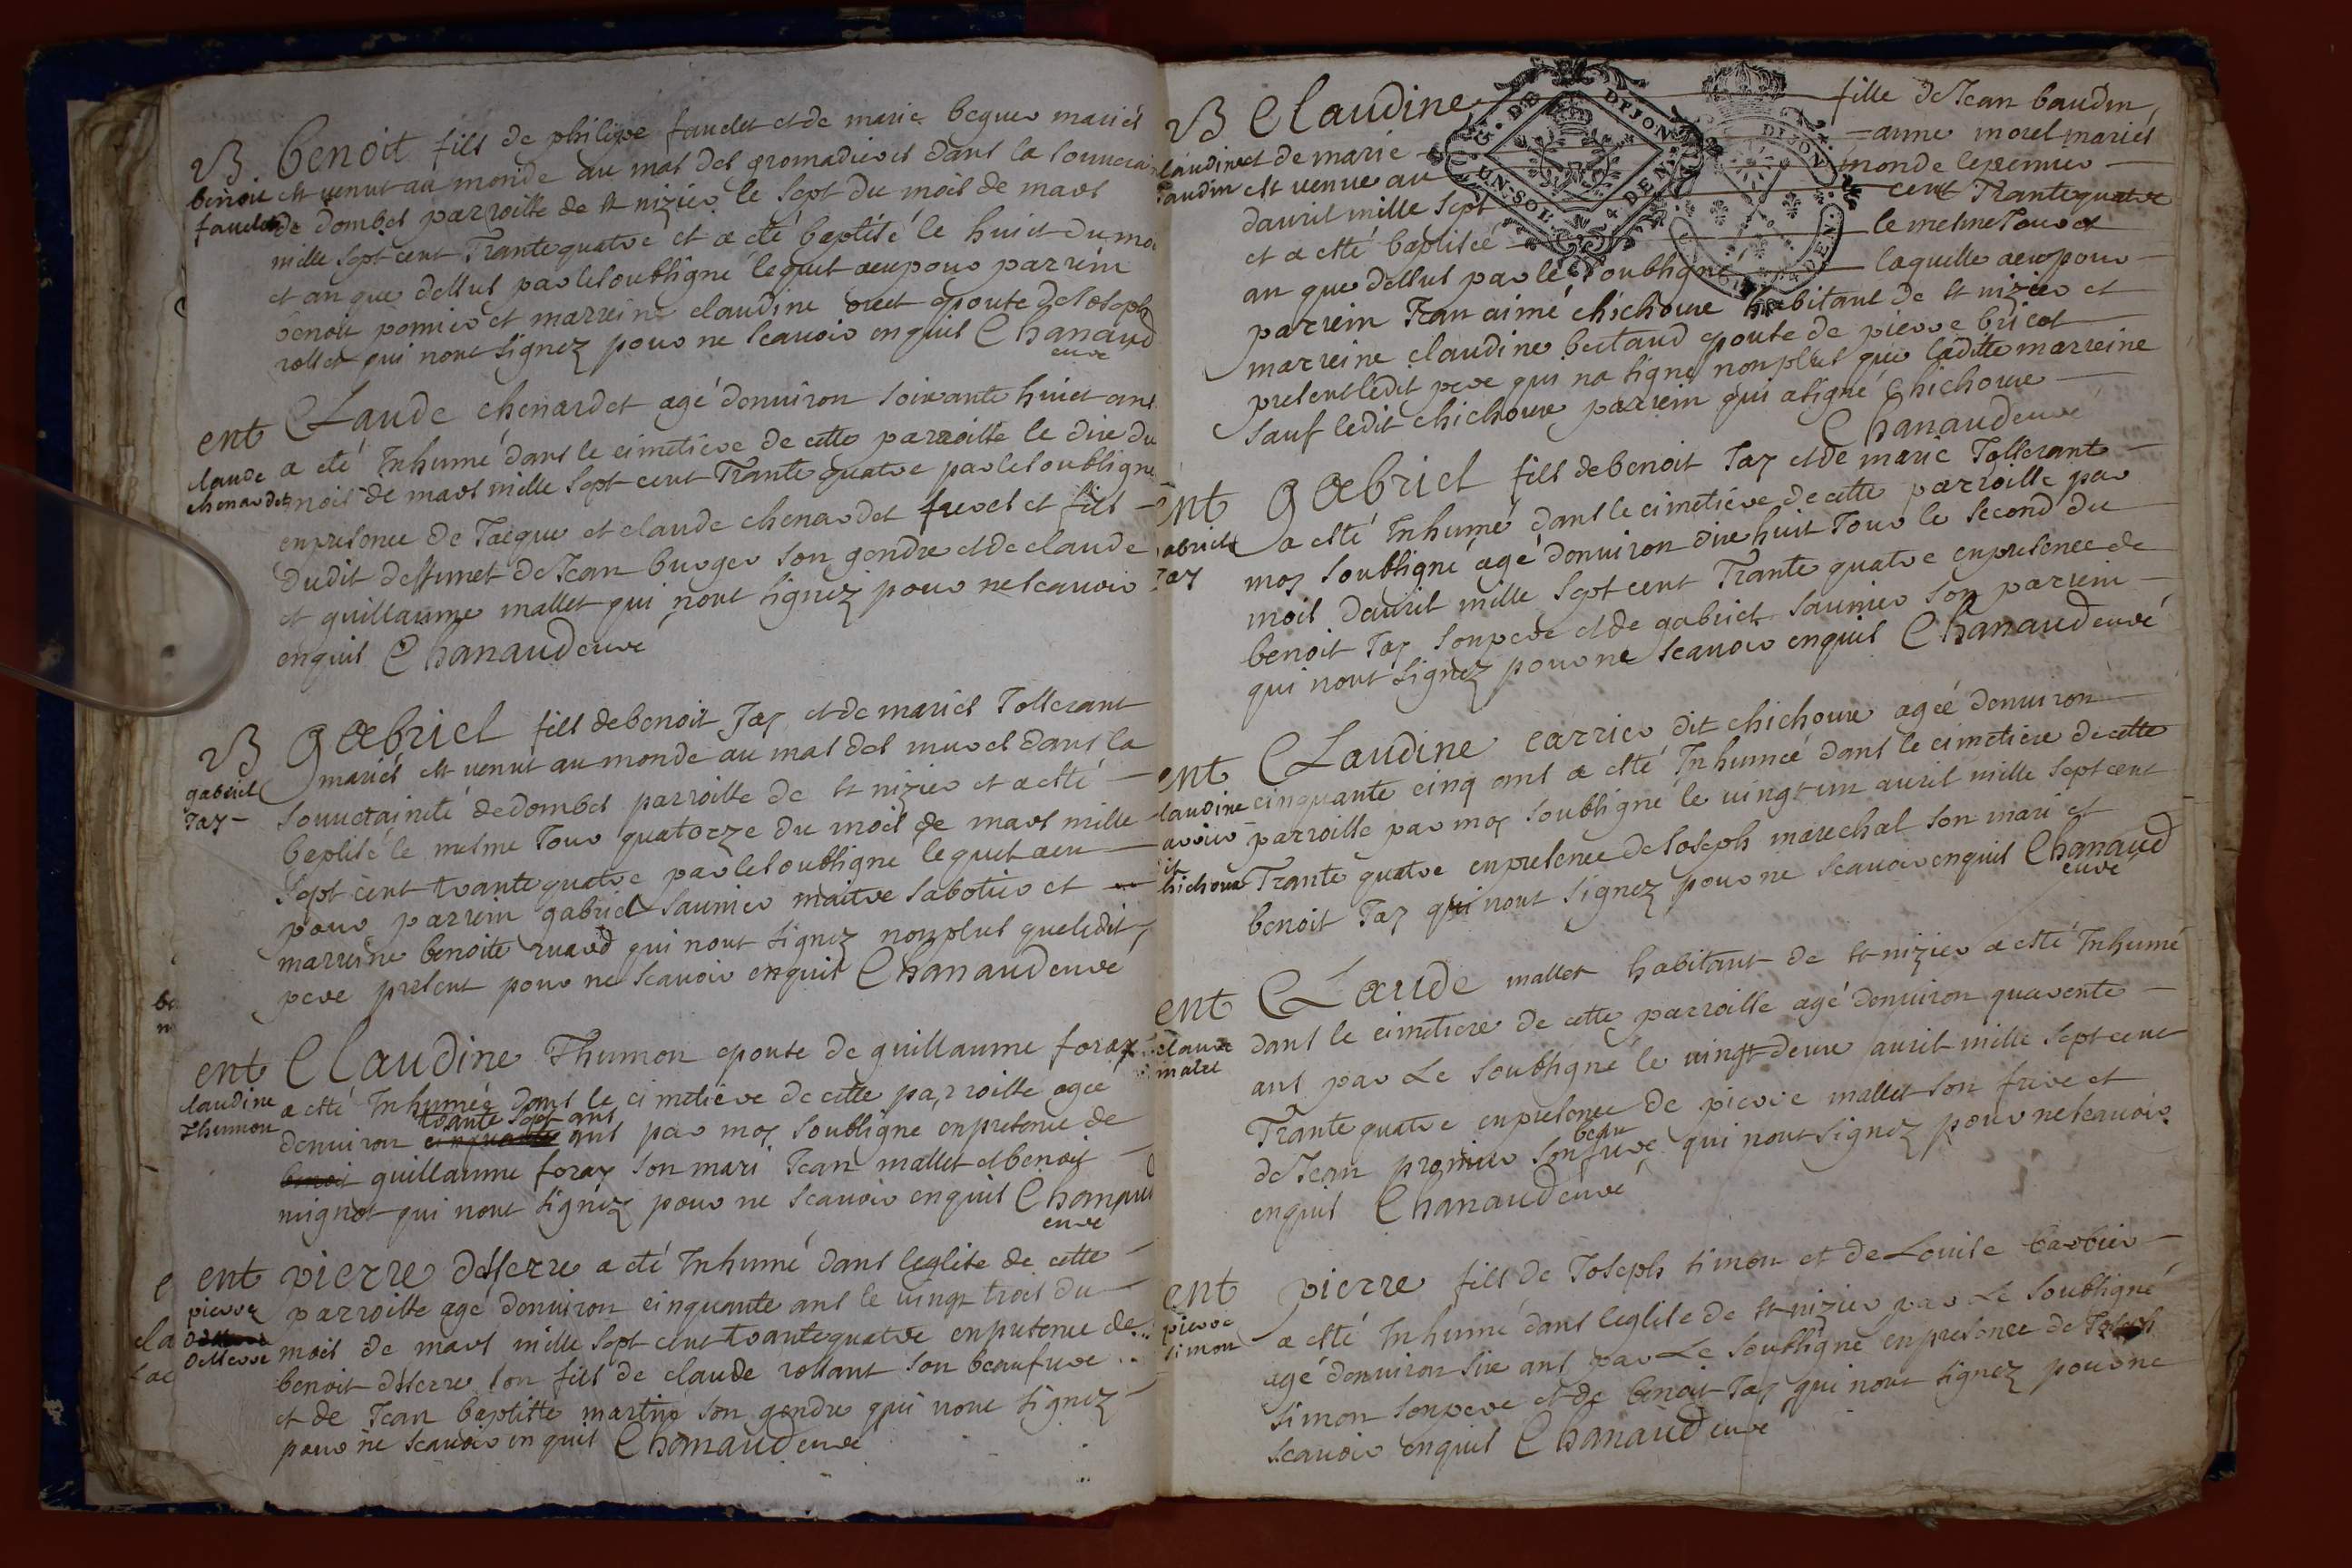 B. Benoit fils de philipe faudet et de marie beguer mariés
benoit est venut au monde au mas des gromadieres dans la souverai
faudet de dombes parroisse de st nizier le sept du mois de mars
mille sept cent Trante quatre et a été baptisé le huict du moi
et an que dessus par le soubsigné lequel a eu pour parrein
benoit pomier et marreine claudine epouse de Joseph
rollet qui n'ont signez pour ne scavoir enquis Chanaud
curé
ent Claude chenardet agé d'environ soixante huict ans
claude a été Inhumé dans le cimetière de cette parroisse le dixe du
chenardet mois de mars mille sept cent Trante quatre par le soubsigné
en presence de Jacque et claude chenardet freres et fils
dudit deffunct de Jean burger son gendre et de claude
et guillaume mallet qui n'ont signez pour ne scavoir
enquis Chanaud curé
B Gabriel fils de benoit Jay et de maries Tollerant
gabriel mariés est venut au monde au mas des mures dans la
Jay souveraineté de dombes parroisse de st nizier et a esté
baptisé le mesme Jour quatorze du mois de mars mille
sept cent trante quatre par le soubsigné lequel a eu
pour parrein gabriel saunier maitre sabotier et
marreine benoite ruard qui n'ont signez non plus que ledit
pere present pour ne scavoir enquis Chanaud curé
ent Claudine Thumon epouse de guillaume foray
claudine a esté Inhumée dans le cimetière de cette parroisse agée
trante sept ans
Thumon d'environ cinquante ans par moy soubsigné en presence de
benoit guillaume foray son mari Jean mallet et benoit
mignot qui n'ont signez pour ne scavoir enquis Chanaud
curé
ent pierre desserre a été Inhumé dans l'eglise de cette
pierre parroisse agé d'environ cinquante ans le vingt trois du
desserre mois de mars mille sept cent trante quatre en presence de
benoit desserre son fils de claude rollant son beaufrere
et de Jean baptiste martin son gendre qui n'ont signez
pour ne scavoir enquis Chanaud curé
B Claudine fille de Jean baudin
claudine et de marie anne morel mariés
baudin est venue au monde le premier
d'avril mille sept cent Trante quatre
et a esté baptisée le mesme Jour et
an que dessus par le soubsigné laquelle a eu pour
parrein Jean aimé chichoux habitant de st nizier et
marreine claudine bertaud epouse de pierre bricot
present ledit pere qui n'a signé non plus que ladite marreine
sauf ledit chichoux parrein qui a signé Chichoux
Chanaud curé
G. DE DIJON
UN SOL 4 DEN
DIJON
DEN
ent Gabriel fils de benoit Jay et de marie Tollerant
gabriel a esté Inhumé dans le cimetière de cette parroisse par
Jay moy soubsigné agé d'environ dixe huit Jour le second du
mois d'avril mille sept cent Trante quatre en presence de
benoit Jay son pere et de gabriel saunier son parrein
qui n'ont signez pour ne scavoir enquis Chanaud curé
ent Claudine carrier dit chichoux agée d'environ
claudine cinquante cinq ans a esté Inhumée dans le cimetière de cette
carrier parroisse par moy soubsigné le vingt un avril mille sept cent
dit
chichoux Trante quatre en presence de Joseph marechal son mari et
benoit Jay qui n'ont signez pour ne scavoir enquis Chanaud
curé
ent Claude mallet habitant de st nizier a esté Inhumé
claude dans le cimetiere de cette parroisse agé d'environ quarente
malet ans par Le soubsigné le vingt deuxe avril mille sept cent
Trante quatre en presence de pierre mallet son frere et
beau
de Jean promier son frere qui n'ont signez pour ne scavoir
enquis Chanaud curé
ent pierre fils de Joseph simon et de Louise barbier
pierre a esté Inhumé dans l'eglise de st nizier par Le soubsigné
simon agé d'environ sixe ans par Le soubsigné en presence de Joseph
simon son pere et de benoit Jay qui n'ont signez pour ne
scavoir enquis Chanaud curé